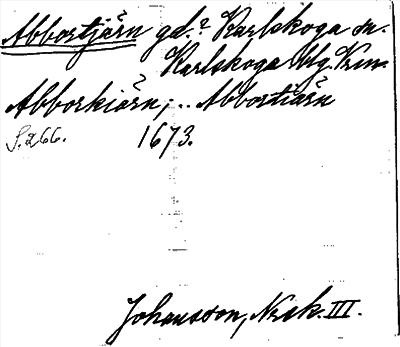 Abbortjärn gd.? Karlskoga sn.
Karlskoga blg. Krm.
Abborkiärn, ... Abbortiärn
S. 266. 1673.
Johansson, Norak. III.